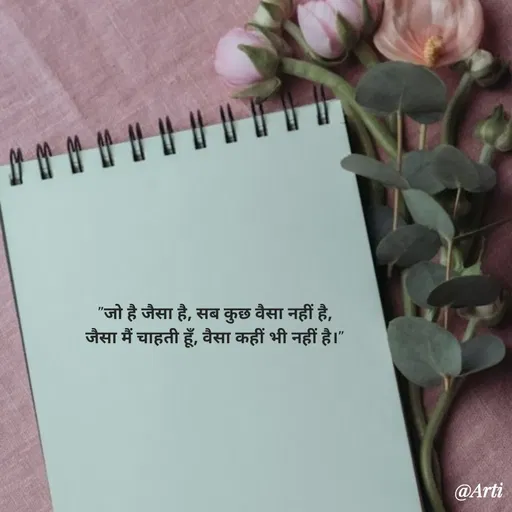 "जो है जैसा है, सब कुछ वैसा नहीं है,
जैसा मैं चाहती हूँ, वैसा कहीं भी नहीं है।"
@Arti